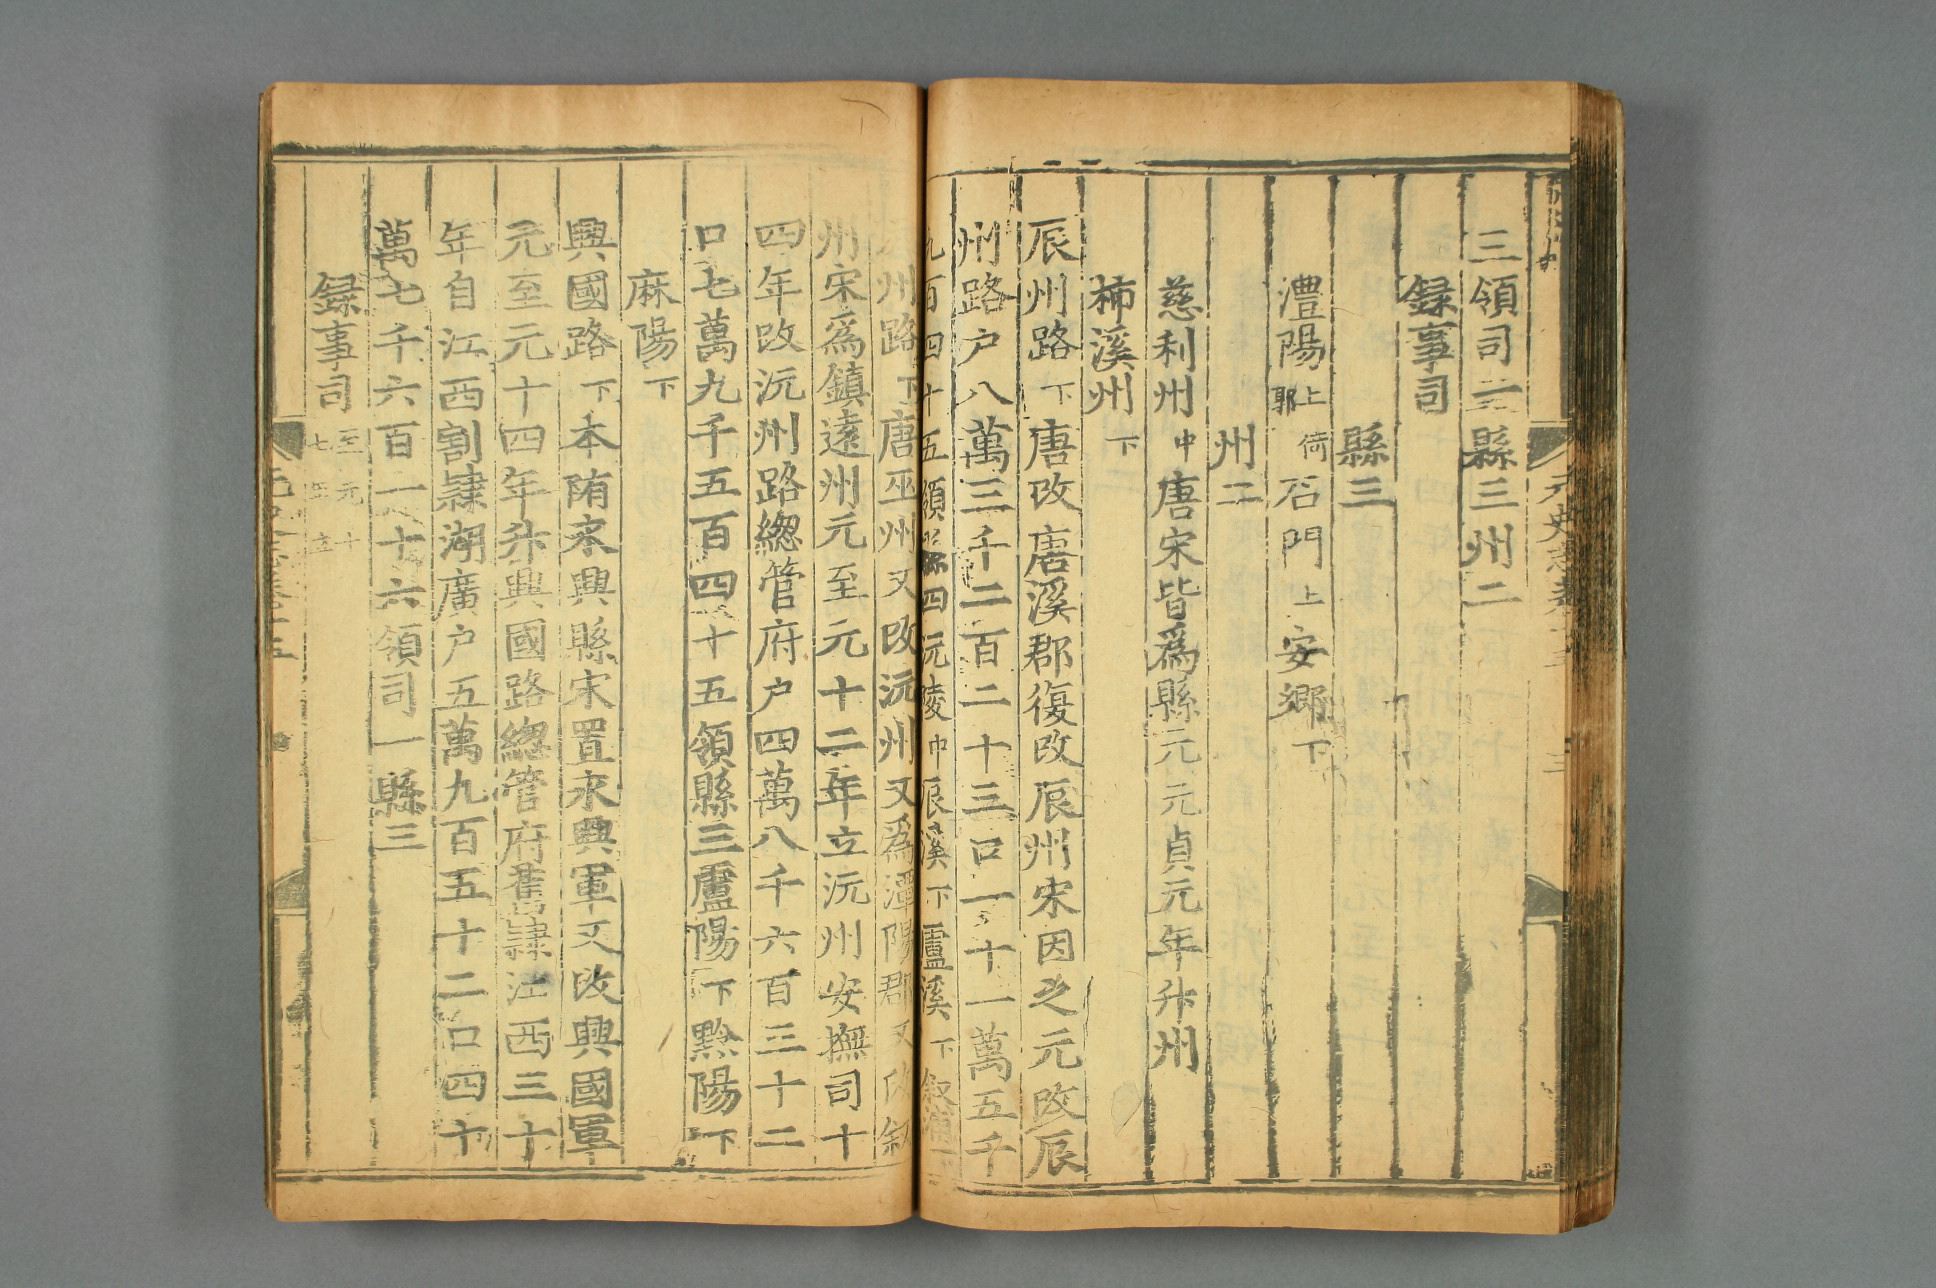 三領司一縣三州二
録事司
縣三
澧陽上倚郭石門上安鄉下
州二
慈利州中唐宋皆爲縣元元貞元年升州
柿溪州下
辰州路下唐改唐溪郡復改辰州宋因之元改辰
州路户八萬三千二百二十三口一十一萬五千
九百四十五領縣四沅陵中辰溪下盧溪下叙浦下
州路下唐巫州又改沅州又爲潭陽郡又改叙
州宋爲鎮遠州元至元十二年立沅州安撫司十
四年改沅州路緫管府户四萬八千六百三十二
口七萬九千五百四十五領縣三盧陽下黔陽下
麻陽下
興國路下本隋永興縣宋置永興軍又改興國軍
元至元十四年升興國路緫管府舊隷江西三十
年自江西割隷湖廣户五萬九百五十二口四十
萬七千六百一十六領司一縣三
録事司至元十七年立